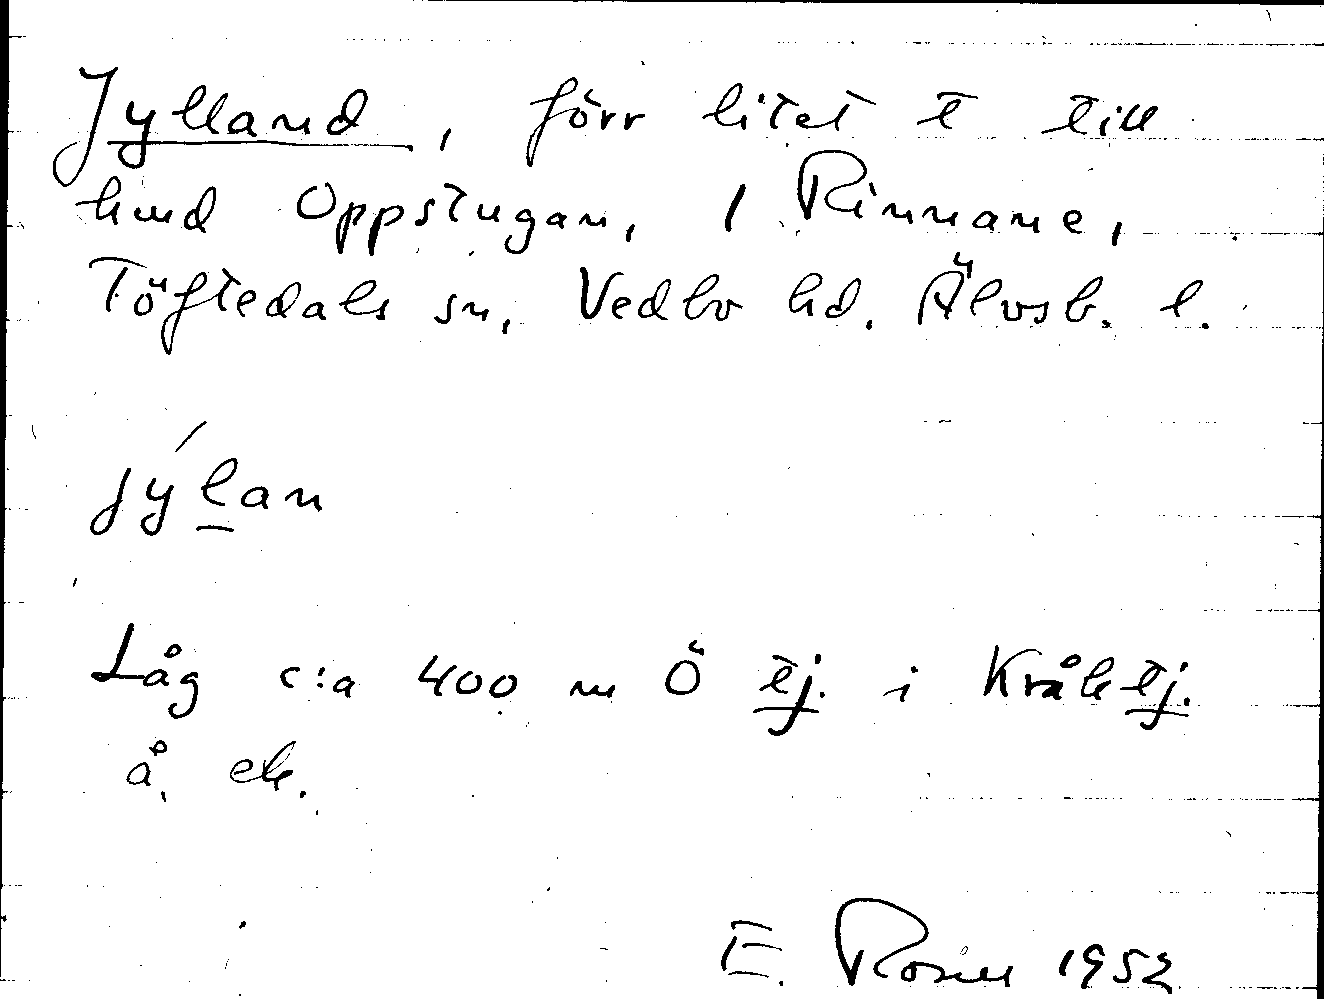 Jylland, förr litet t till
hmd Oppstugan, 1 Rinnane,
Töftedals sn, Vedbo hd. Älvsb. l.
jýlan
Låg c:a 400 m Ö tj. i Kråktj.
å. ek.
E. Rosin 1952